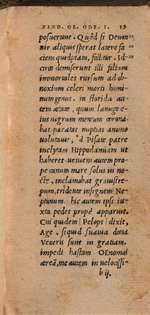 PIND. OL. ODE. I. 19
posuerunt. Quòd si Deum
vir aliquis sperat latere fa
ciens quidpiam, fallitur. Id
circò demiserunt illi filium
immortales rursum ad ob-
noxium celeri morti homi
num genus. in florida au-
tem ætate, quum lanugo e-
ius nigrum mentum corona-
bat paratas nuptias animo
volutavit, à Pisate patre
inclytam Hippodamiam ut
haberet. veniens autem prope
canum mare solus in no-
cte, inclamabat gravistre-
pum, tridente insignem Ne-
ptunum. hic autem ipsi iux
ta pedes propè apparuit.
Cui quidem Pelops dixit,
Age, siquid suavia dona
Veneris sunt in gratiam,
impedi hastam OEnomai
æream, me autem in velocissi-
b ij.